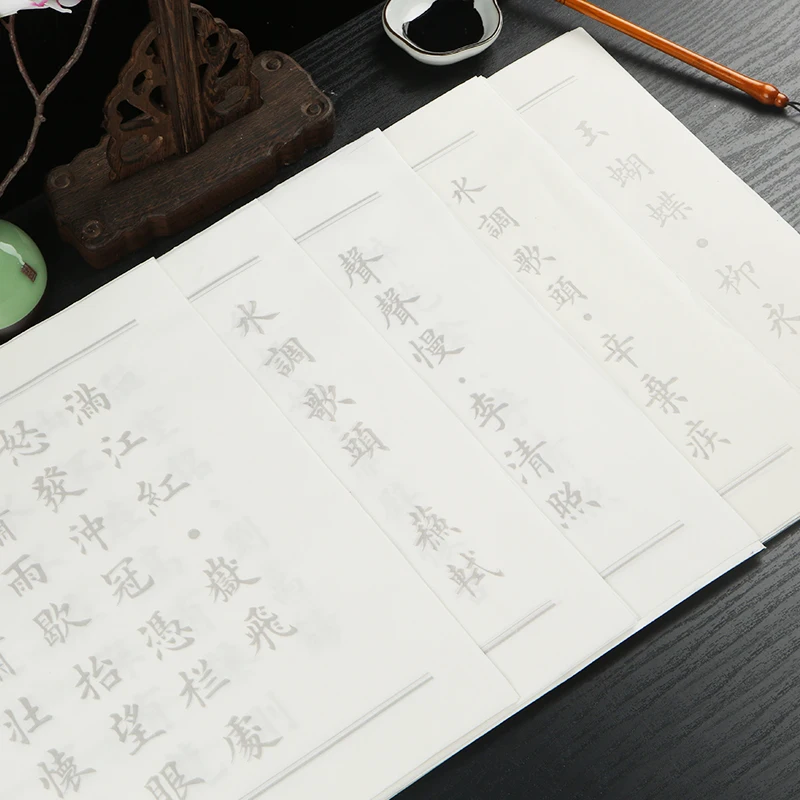 玉蝴蝶·柳永
水調歌頭·辛棄疾
聲聲慢·李清照
水調歌頭 蘇軾
滿江紅·嶽飛
怒發沖冠憑栏處
雨歇抬望眼
壯懷